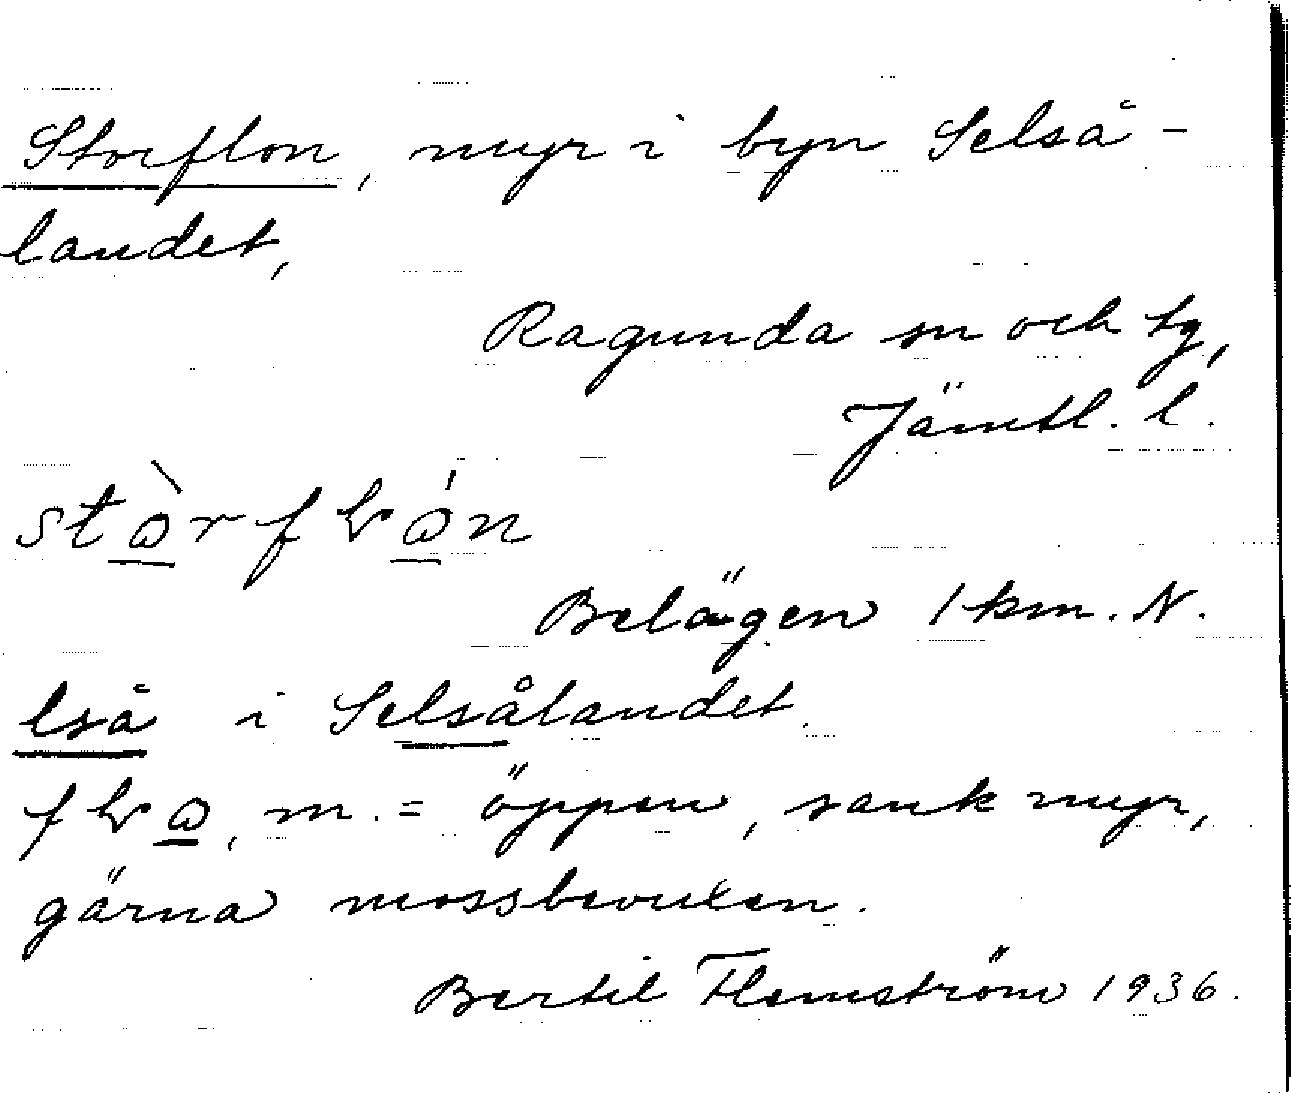 Storflon, myr i byn Selså-
landet,
Ragunda sn och tg,
Jämtl. l.
Belägen 1 km. N.
lså i Selsålandet.
m. = öppen, sank myr,
gärna mossbevuxen.
Bertil Flemström 1936.